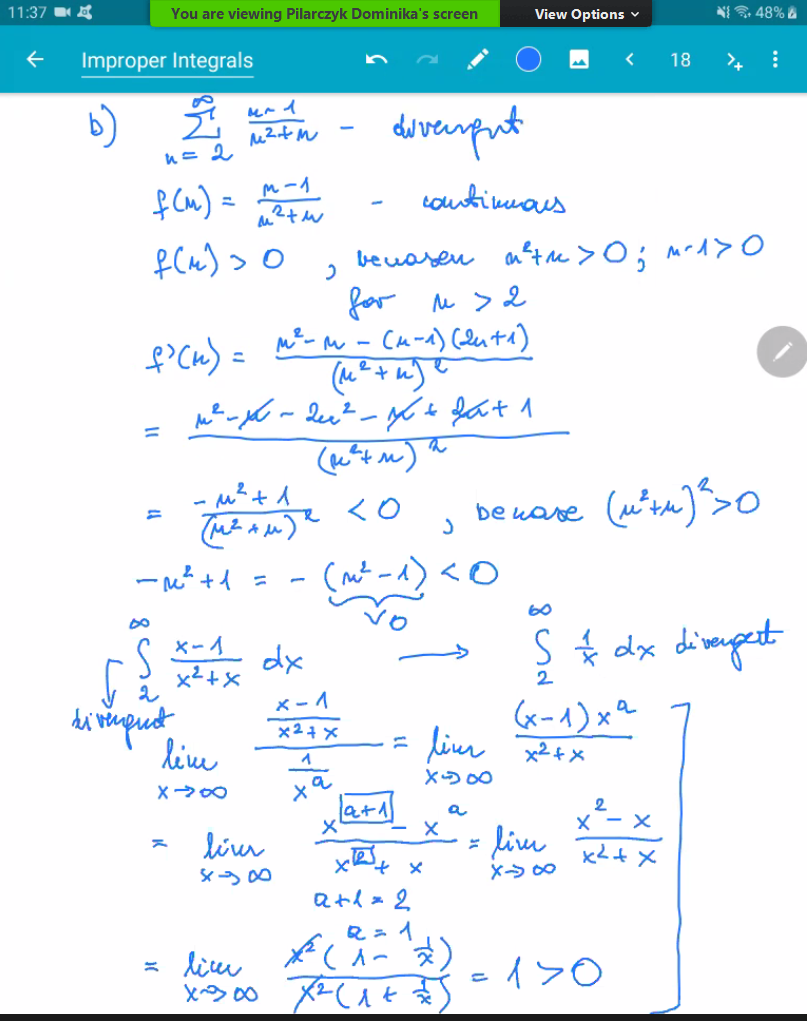 11:37
You are viewing Pilarczyk Dominika's screen
View Options
48%
Improper Integrals
18
b) ∑_{n=2}^{∞} (n-1)/(n²+n) - divergent
f(n) = (n-1)/(n²+n) - continuous
f(n) > 0 , because n²+n > 0 ; n-1 > 0
for n > 2
f'(n) = (n²-n-(n-1)(2n+1))/(n²+n)²
= (n²-n-2n²-n+2n+1)/(n²+n)²
= (-n²+1)/(n²+n)² < 0 , because (n²+n)² > 0
-n²+1 = -(n²-1) < 0
∨0
∫_{2}^{∞} (x-1)/(x²+x) dx → ∫_{2}^{∞} 1/x dx divergent
divergent
lim_{x→∞} ((x-1)/(x²+x))/(1/x^a) = lim_{x→∞} ((x-1)x^a)/(x²+x)
= lim_{x→∞} (x^{a+1}-x^a)/(x^2+x) = lim_{x→∞} (x²-x)/(x²+x)
a+1=2
a=1
= lim_{x→∞} (x²(1-1/x))/(x²(1+1/x)) = 1 > 0